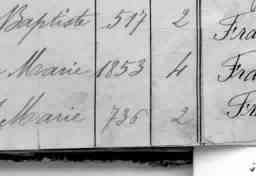 Baptiste 517 2 Fra
Marie 1853 4 Fra
Marie 736 2 Fr